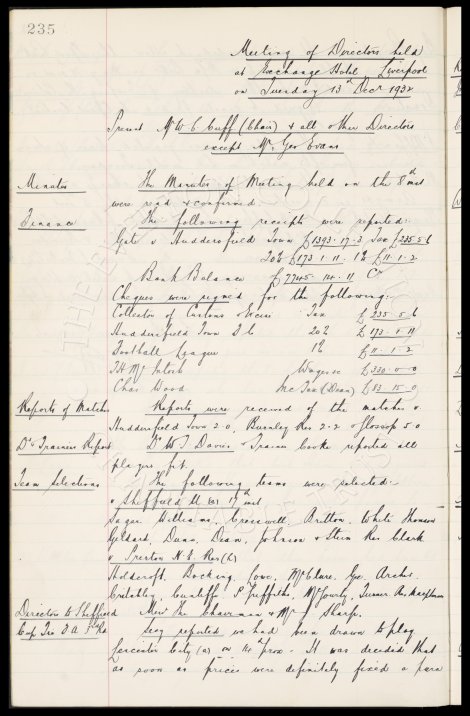 235
Meeting of Directors held
at Exchange Hotel Liverpool
on Tuesday 13th Decr 1932
Present Mr W. C. Cuff (Chair) & all other Directors
except Mr. Geo Evans
Minutes
The Minutes of Meeting held on the 8th inst
were read & confirmed.
Finance
The following receipts were reported:
Gate v Huddersfield Town £1393.17.3 Tax £235.5.6
20% £173.1.11 1% £11.1.2
Bank Balance £7745.14.11 Cr
Cheques were signed for the following:
Collector of Customs & Excise Tax £235.5.6
Huddersfield Town F.C. 20% £173.1.11
Football League 1% £11.1.2
T.H. McIntosh Wages £330.0.0
Chas Wood Inc Tax (Dean) £83.15.0
Reports of Matches
Reports were received of the matches v.
Huddersfield Town 2.0, Burnley Res 2.2 & Glossop 5.0
Dr & Trainers Report
Dr W J Davies & Trainer Cooke reported all
players fit.
Team Selections
The following teams were selected:
v Sheffield U (a) 17th inst
Sagar Williams, Cresswell, Britton, White Thomson
Geldard, Dunn, Dean, Johnson & Stein Res Clark
v Preston N.E. Res (h)
Holdcroft, Bocking, Lowe, McClure, Gee, Archer
Critchley, Cunliffe, P Griffiths, McGourty, Turner Res
Directors to Sheffield
Mess The Chairman & Mr J Sharp.
Cup Tie
Secy reported we had been drawn to play
Leicester City (a) on 14 prox. It was decided that
as soon as prices were definitely fixed a para